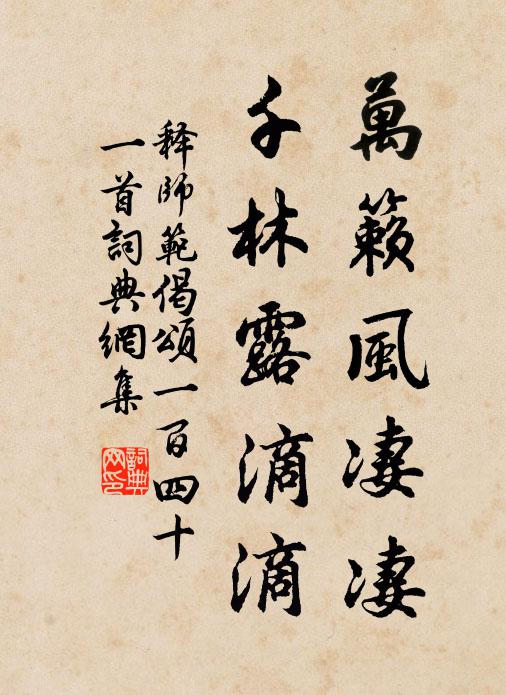 萬籟風凄凄
千林露滴滴
释師範偈頌一百四十
一首詞典網集
詞典網印